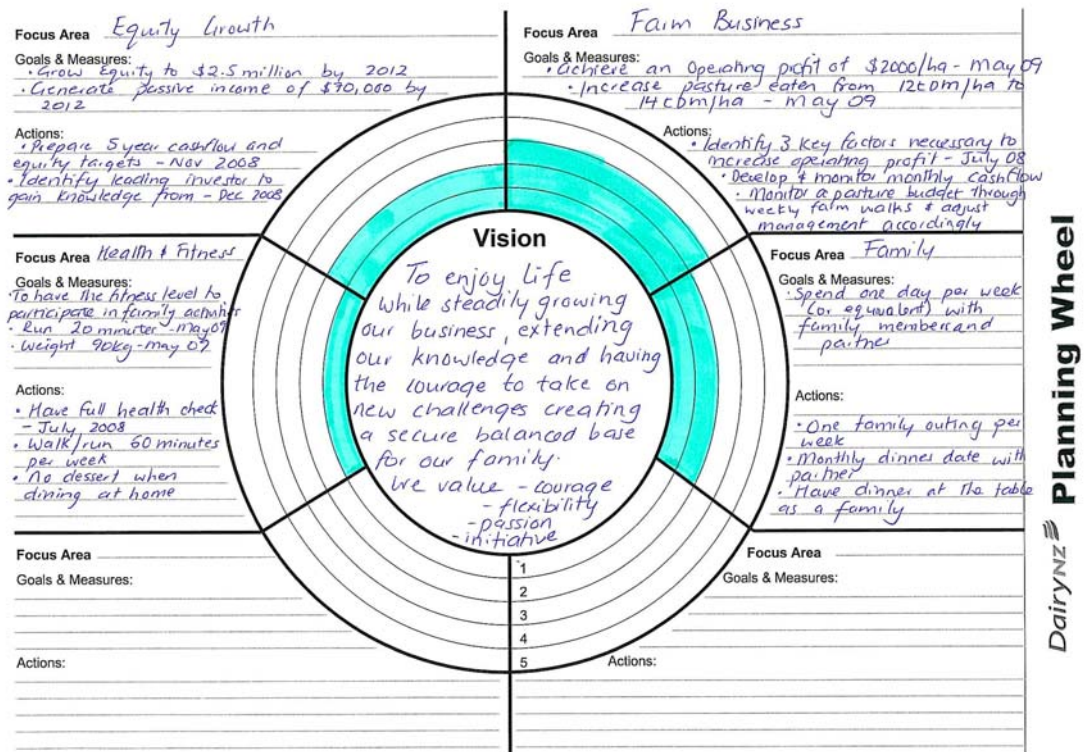 Focus Area Equity Growth
Goals & Measures:
• Grow Equity to $2.5 million by 2012
• Generate passive income of $70,000 by
2012
Actions:
• Prepare 5 year cashflow and
equity targets - Nov 2008
• Identify leading investor to
gain knowledge from - Dec 2008
Focus Area Farm Business
Goals & Measures:
• Achieve an Operating profit of $2000/ha - May 09
• Increase pasture eaten from 12tDM/ha to
14tDM/ha - May 09
Actions:
• Identify 3 key factors necessary to
increase operating profit - July 08
• Develop & monitor monthly cashflow
• Monitor a pasture budget through
weekly farm walks & adjust
management accordingly
Focus Area Health & Fitness
Goals & Measures:
• To have the fitness level to
participate in family activities
• Run 20 minutes - May 09
• Weight 90kg - May 09
Actions:
• Have full health check
- July 2008
• Walk/run 60 minutes
per week
• No dessert when
dining at home
Vision
To enjoy life
while steadily growing
our business, extending
our knowledge and having
the courage to take on
new challenges creating
a secure balanced base
for our family.
We value - courage
- flexibility
- passion
- initiative
Focus Area Family
Goals & Measures:
• Spend one day per week
(or equivalent) with
family members and
partner
Actions:
• One family outing per
week
• Monthly dinner date with
partner
• Have dinner at the table
as a family
Focus Area
Goals & Measures:
Actions:
1
2
3
4
5
Focus Area
Goals & Measures:
Actions:
DairyNZ Planning Wheel